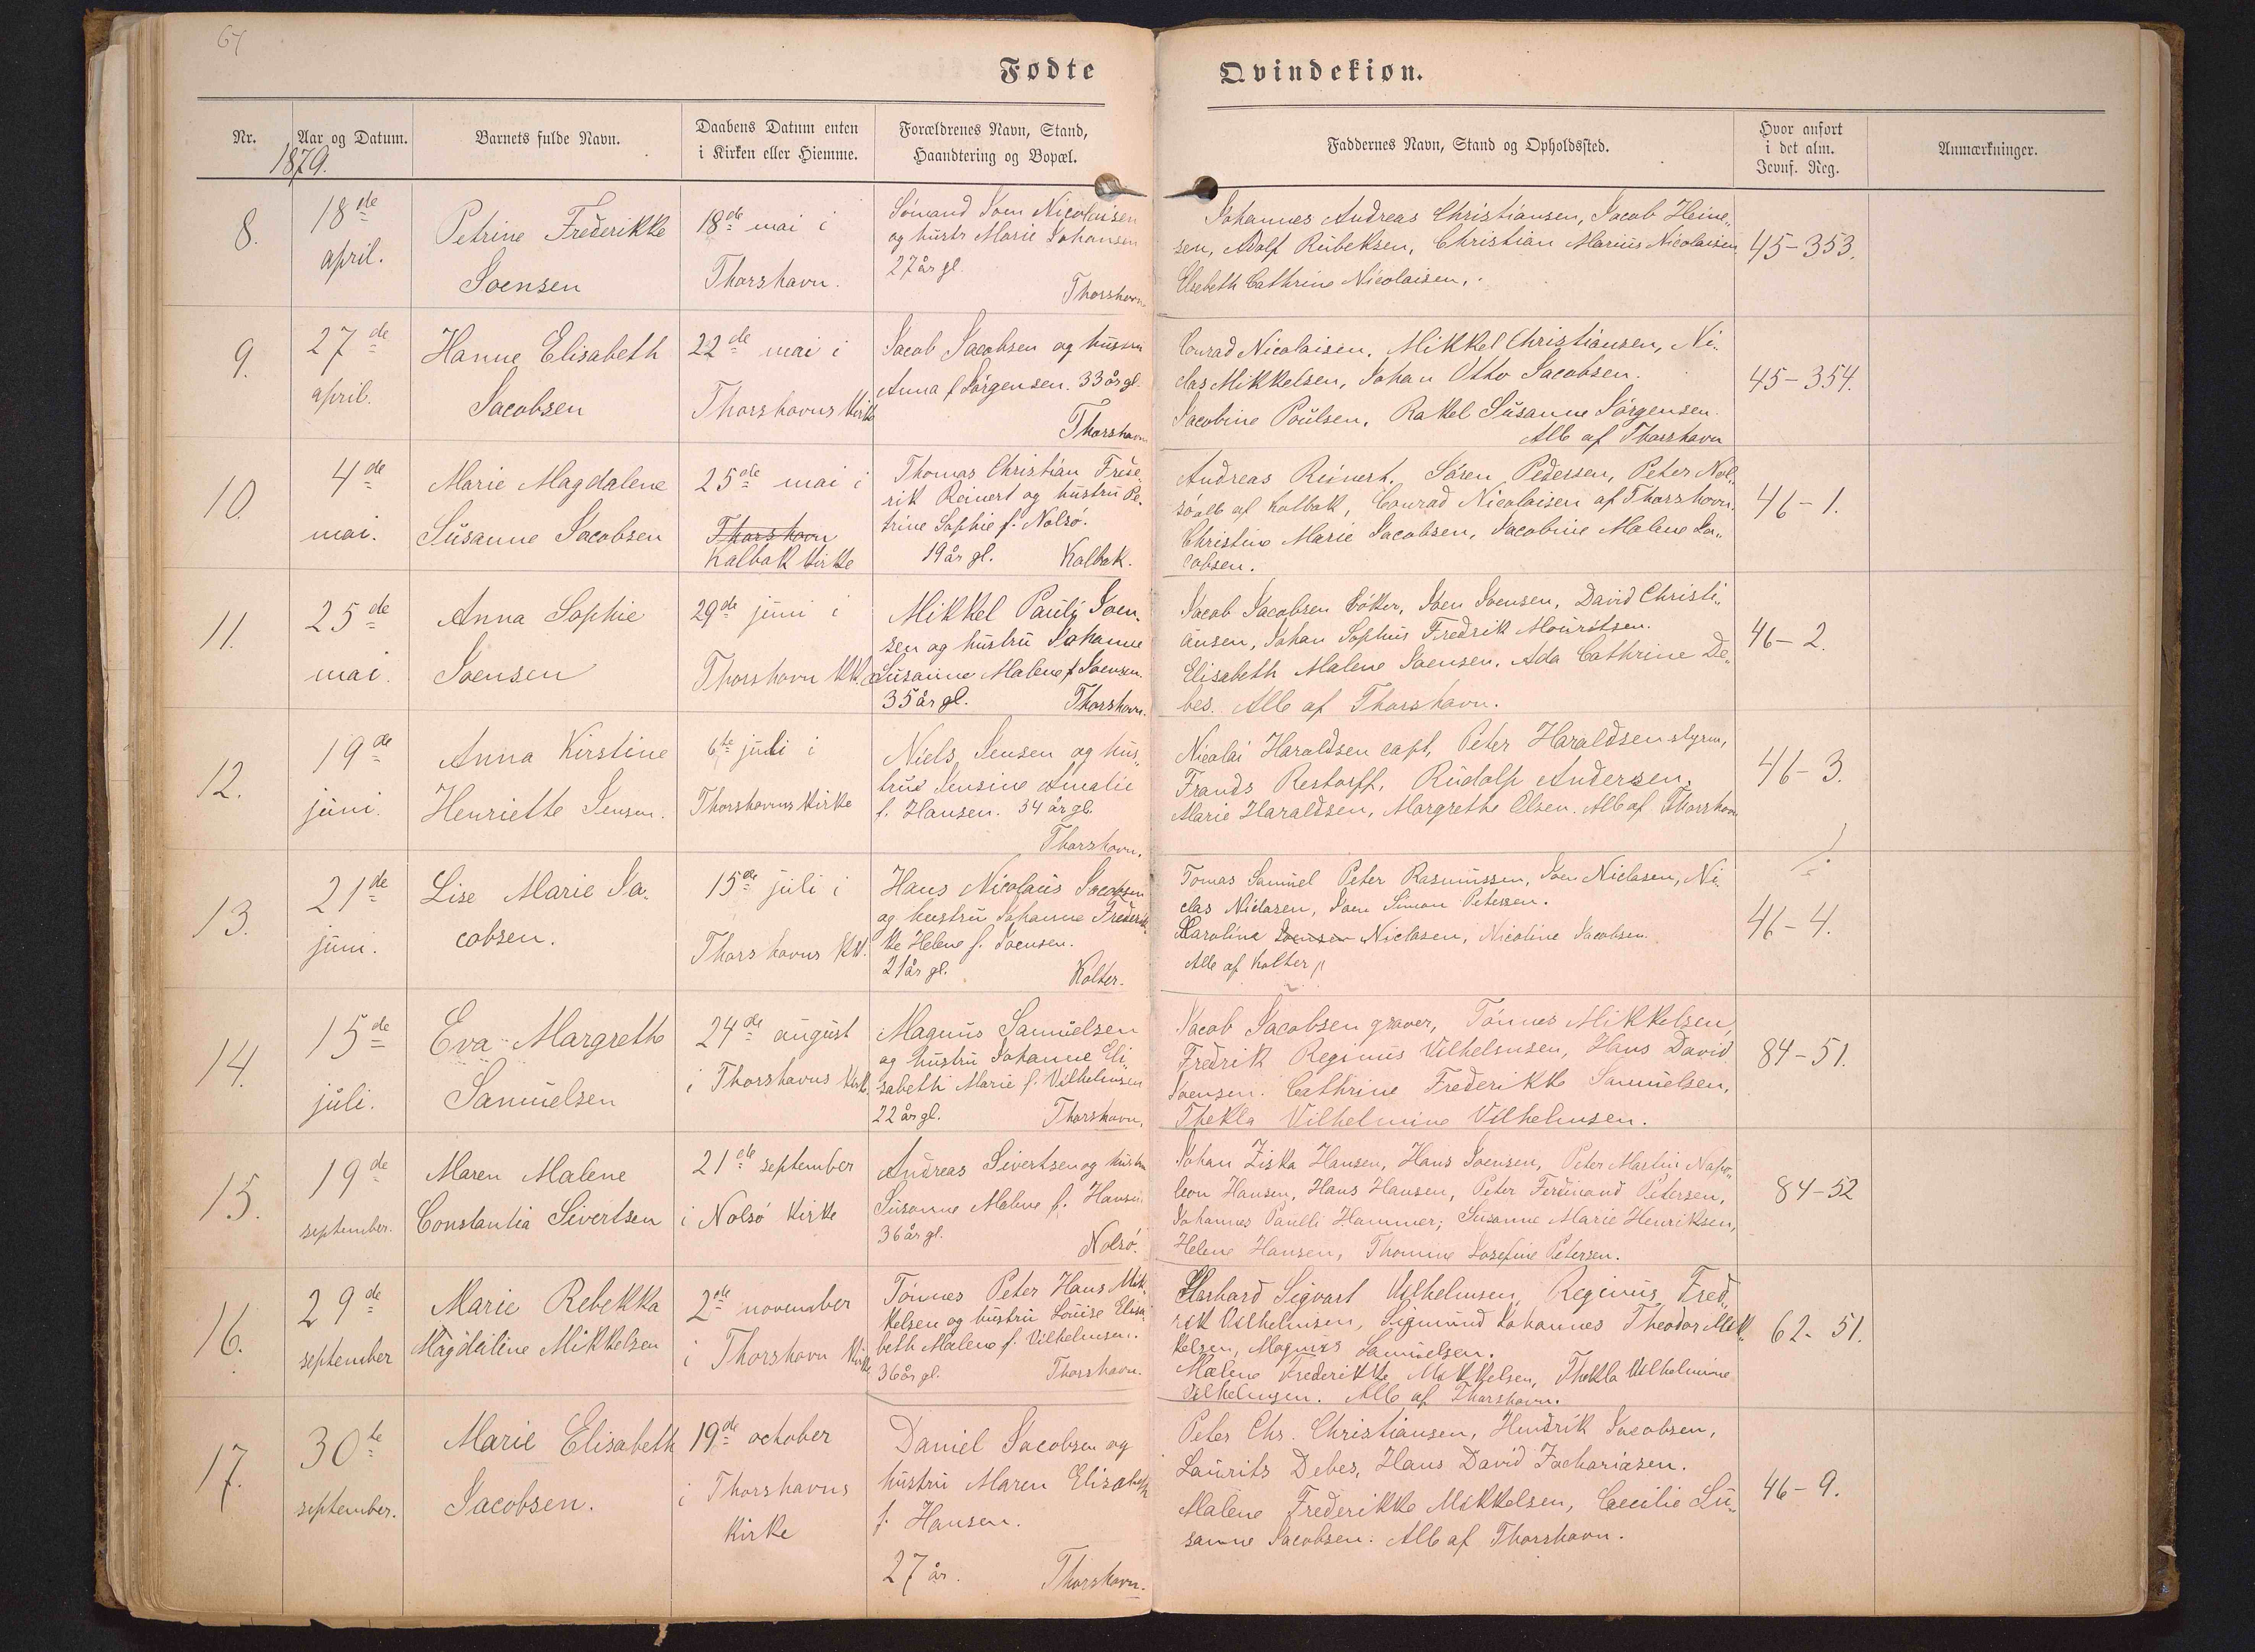 67
Fødte
Qvindekiøn.
Nr.
Aar og Datum.
Barnets fulde Navn.
Daabens Datum enten
i Kirken eller Hiemme.
Forældrenes Navn, Stand,
Haandtering og Bopæl.
Faddernes Navn, Stand og Opholdssted.
Hvor anført
i det alm.
Jevnf. Reg.
Anmærkninger.
1879.
8.
18de
april.
Petrine Frederikke
Joensen
18de mai i
Thorshavn.
Sömand Joen Nicolaisen
og hustr Marie Johansen
27 år gl.
Thorshavn
Johannes Andreas Christiansen, Jacob Heine„
sen, Adolf Rübeksen, Christian Marius Nicolaisen
Elsebeth Cathrine Nicolaisen.
45-353.
9.
27de
april.
Hanne Elisabeth
Jacobsen
22de mai i
Thorshavns Kirke
Jacob Jacobsen og hustru
Anna f Jörgensen. 33 år gl.
Thorshavn
Conrad Nicolaisen, Mikkel Christiansen, Ni„
clas Mikkelsen, Johan Otto Jacobsen.
Jacobine Poulsen, Rakel Susanne Jörgensen.
Alle af Thorshavn
45-354.
10.
4de
mai.
Marie Magdalene
Susanne Jacobsen
25de mai i
Thorshavn
Kalbak Kirke
Thomas Christian Frede„
rik Reinert og hustru Pe„
trine Sophie f. Nolsö.
19 år gl. Kalbak.
Andreas Reinert, Sören Pedersen, Peter Nol„
sö alle af Kalbak, Conrad Nicolaisen af Thorshavn.
Christine Marie Jacobsen, Jacobine Malene Ja„
cobsen.
46-1.
11.
25de
mai.
Anna Sophie
Joensen
29de juni i
Thorshavn KK.
Mikkel Pauli Joen„
sen og hustru Johanne
Susanne Malene f Joensen
35 år gl. Thorshavn.
Jacob Jacobsen Cötter, Joen Joensen, David Christi„
ansen, Johan Sophus Fredrik Mouritsen.
Elisabeth Malene Joensen, Ada Cathrine De„
bes. Alle af Thorshavn.
46-2.
12.
19de
juni.
Anna Kirstine
Henriette Jensen.
6te juli i
Thorshavns Kirke
Niels Jensen og hus„
tru Jensine Amalie
f. Hansen. 34 år gl.
Thorshavn.
Nicolai Haraldsen capt, Peter Haraldsen styrm,
Frands Restorff, Rudolf Andersen.
Marie Haraldsen, Margrethe Olsen. Alle af Thorshavn
46-3.
13.
21de
juni.
Lise Marie Ja„
cobsen.
15de juli i
Thorshavns KK.
Hans Nicolaus Jacobsen
og hustru Johanne Frederik„
ke Helene f. Joensen.
21 år gl.
Kolter.
Tomas Samuel Peter Rasmussen, Joen Niclasen, Ni„
clas Niclasen, Joen Simon Petersen.
Karoline Joensen Niclasen, Nicoline Jacobsen.
Alle af Kolter
46-4.
14.
15de
juli.
Eva Margrethe
Samuelsen
24de august
i Thorshavns Kirke
Magnus Samuelsen
og hustru Johanne Eli„
sabeth Marie f. Vilhelmsen
22 år gl. Thorshavn.
Jacob Jacobsen graver, Tönnes Mikkelsen,
Fredrik Reginus Vilhelmsen, Hans David
Joensen. Cathrine Frederikke Samuelsen,
Thekla Vilhelmine Vilhelmsen.
84-51.
15.
19de
september.
Maren Malene
Constantia Sivertsen
21de september
i Nolsö Kirke
Andreas Sivertsen og hustru
Susanne Malene f. Hansen
36 år gl.
Nolsö.
Johan Ziska Hansen, Hans Joensen, Peter Martin Napo„
leon Hansen, Hans Hansen, Peter Ferdinand Petersen,
Johannes Paulli Hammer; Susanne Marie Henriksen,
Helene Hansen, Thomine Josefine Petersen.
84-52
16.
29de
september
Marie Rebekka
Magdaline Mikkelsen
2de november
i Thorshavn Kirke
Tönnes Peter Hans Mik„
kelsen og hustru Louise Elisa„
beth Malene f. Vilhelmsen.
36 år gl. Thorshavn.
Gerhard Sigvart Vilhelmsen, Reginus Fred„
rik Vilhelmsen, Sigmund Johannes Theodor Mik„
kelsen, Magnus Samuelsen.
Malene Frederikke Mikkelsen, Thekla Vilhelmine
Vilhelmsen. Alle af Thorshavn.
62-51.
17.
30te
september.
Marie Elisabeth
Jacobsen.
19de october
i Thorshavns
Kirke
Daniel Jacobsen og
hustru Maren Elisabeth
f. Hansen.
27 år. Thorshavn.
Peter Chr. Christiansen, Hendrik Jacobsen,
Laurits Debes, Hans David Zachariasen.
Malene Frederikke Mikkelsen, Cecilie Su„
sanne Jacobsen. Alle af Thorshavn.
46-9.